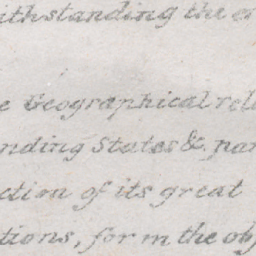 ithstanding the e
e Geographical rel
nding States & par
ction of its great
tions, form the obj